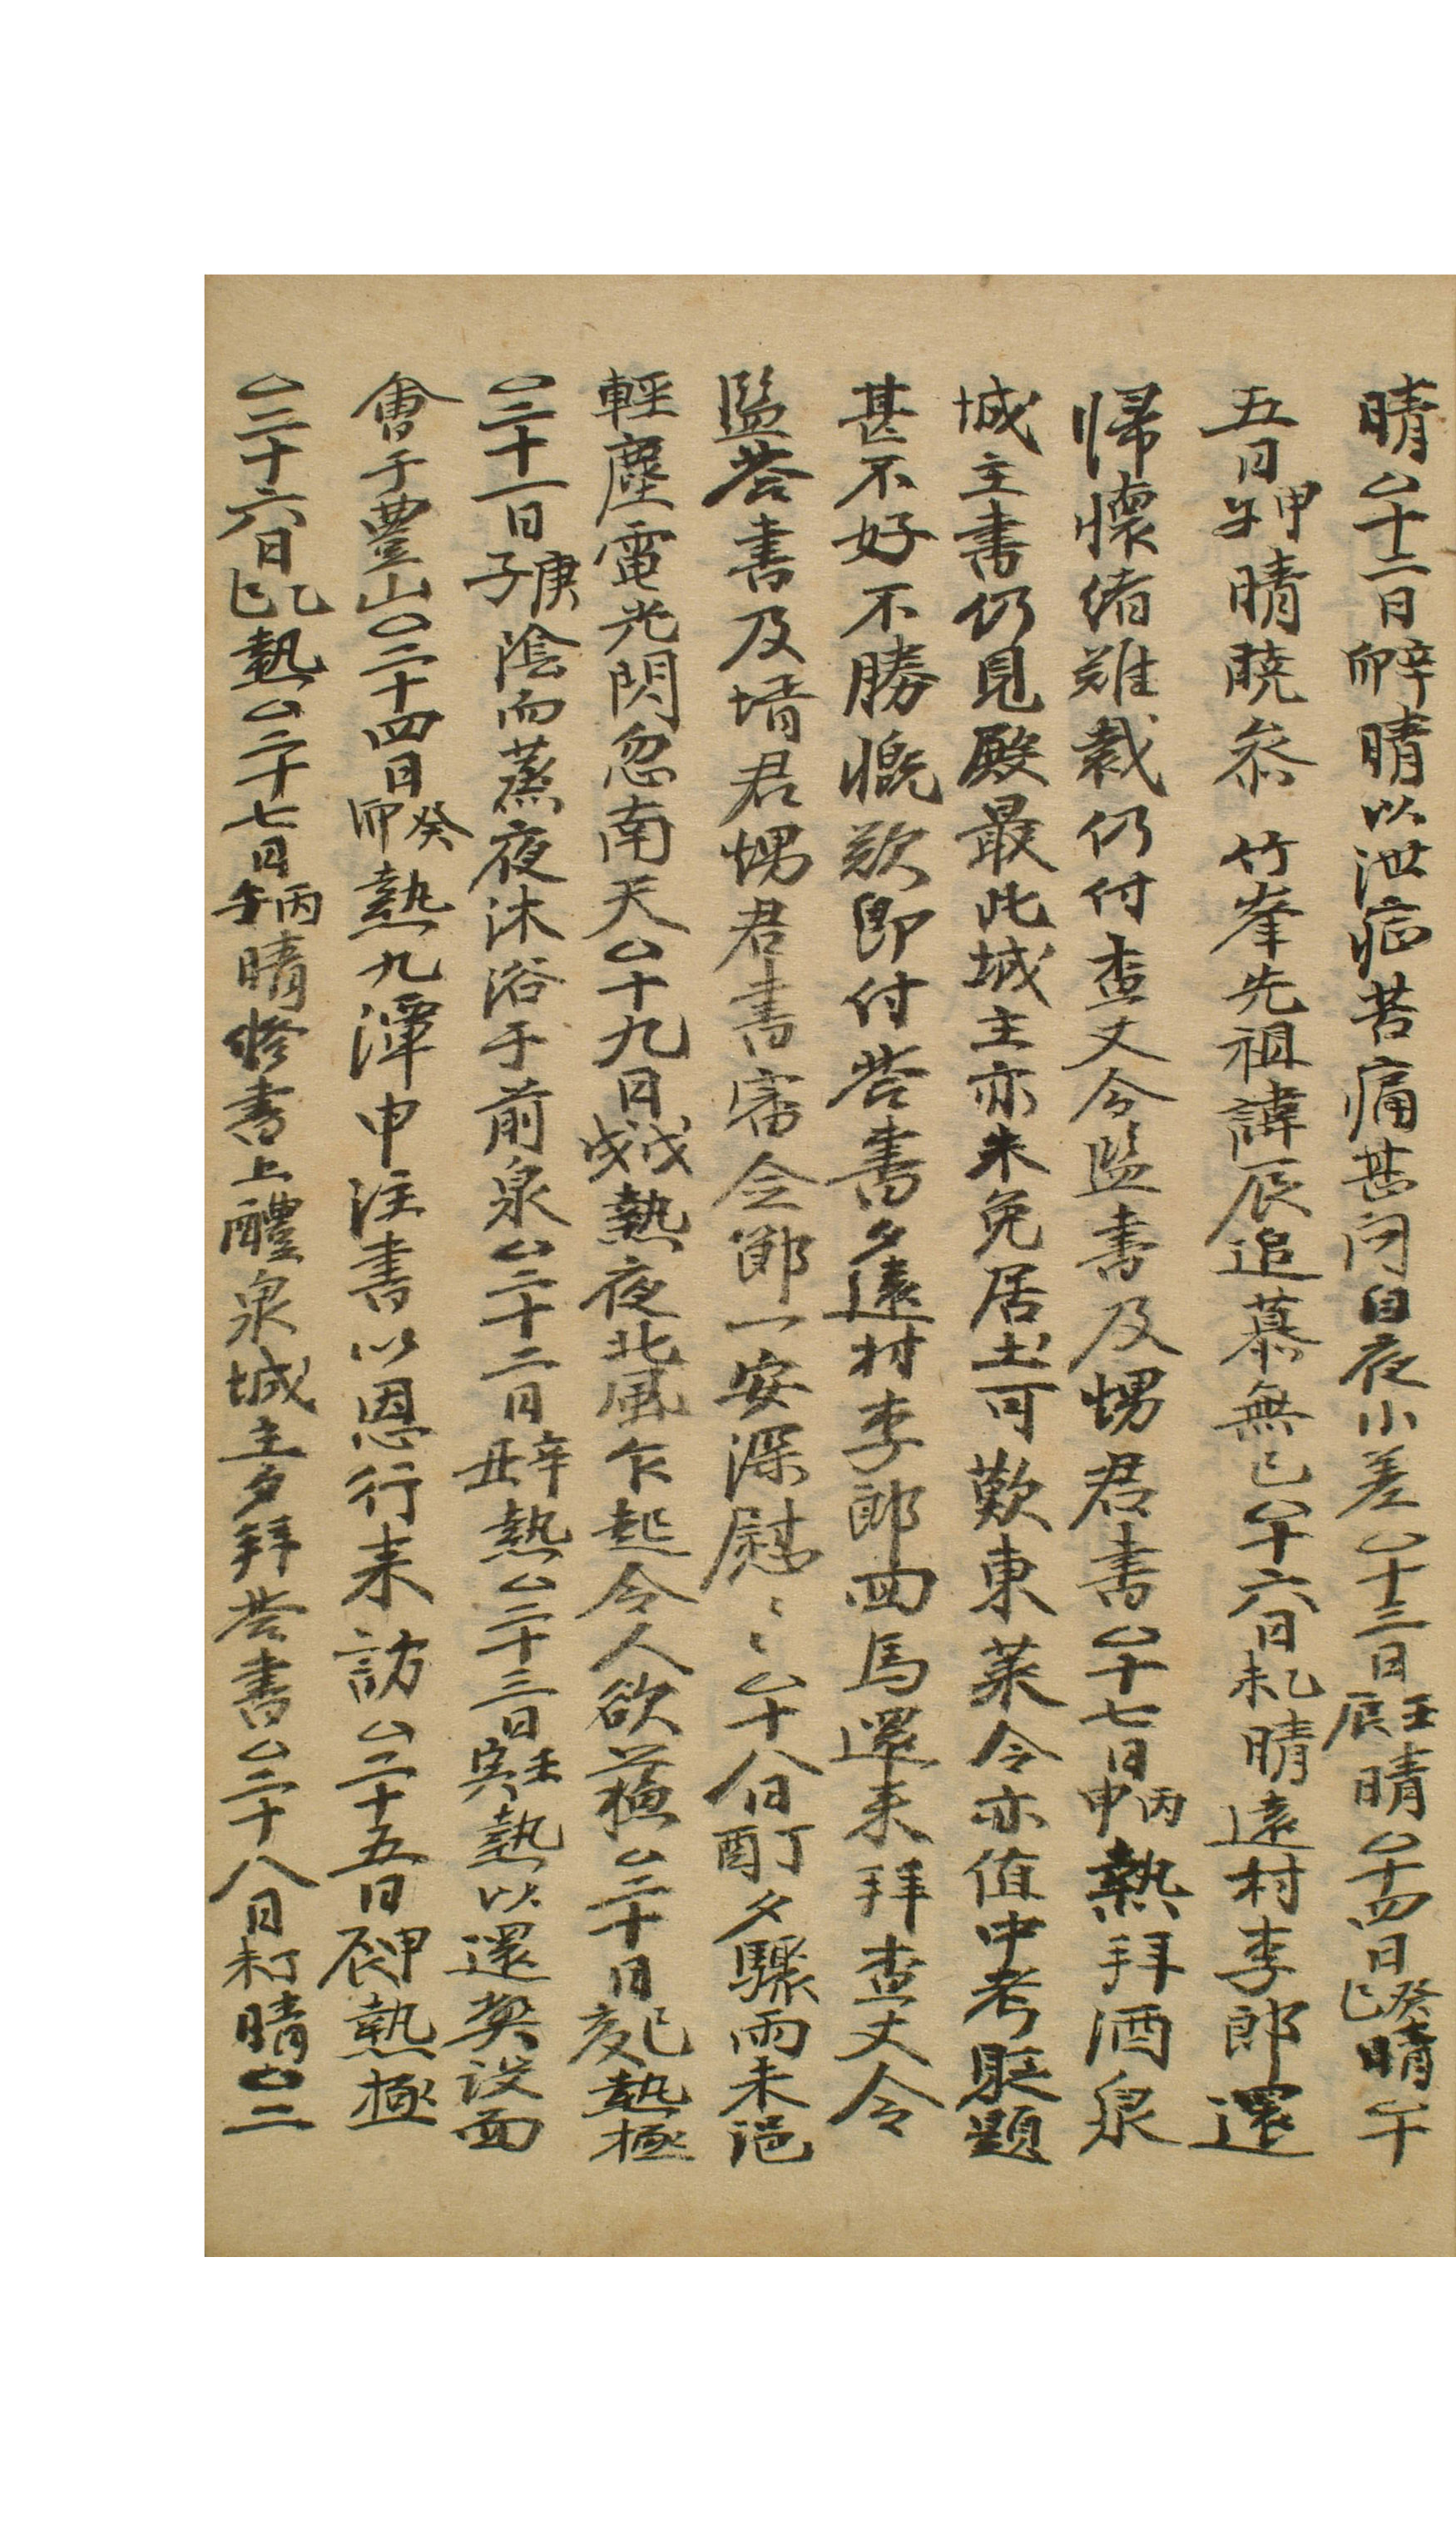 晴○十二日辛卯晴以泄症苦痛甚悶自夜小差○十三日壬辰晴○十四日癸巳晴午
五日甲午晴曉參 竹峯先祖諱辰追慕無已○十六日乙未晴遠村李郎還
帰懷緒難裁仍付査丈令監書及甥君書○十七日丙申熱拜酒泉
城主書仍見殿最此城主亦未免居土可歎東萊令亦值中考貶題
甚不好不勝慨歎卽付答書夕遠村李郎回馬還來拜査丈令
監答書及壻君甥君書審僉節一安深慰〻〻○十八日丁酉夕驟雨未浥
輕塵電光閃忽南天○十九日戊戌熱夜北風乍起令人欲蘓○二十日己亥熱極
○二十一日庚子陰而蒸夜沐浴于前泉○二十二日辛丑熱○二十三日壬寅熱以還奠設面
會于豊山○二十四日癸卯熱九潭申注書以恩行来訪○二十五日甲辰熱極
○二十六日乙巳熱○二十七日丙午晴修書上醴泉城主夕拜答書○二十八日丁未晴○二